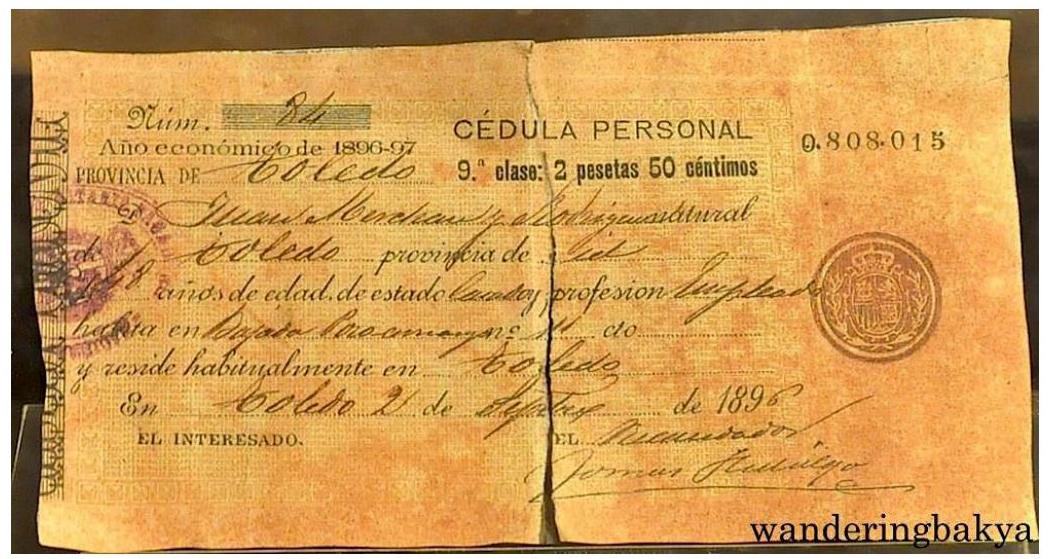 Núm. 84
Año económico de 1896-97
PROVINCIA DE Toledo
CÉDULA PERSONAL
9.ª clase: 2 pesetas 50 céntimos
0.808.015
Juan Merchan y Rodriguez natural
de Toledo provincia de id
años de edad, de estado Casado y profesion Empleado
habita en Bajada nº 11 cto
y reside habitualmente en Toledo
En Toledo 2 de de 1896
EL INTERESADO.
EL Recaudador
Tomas Hidalgo
wanderingbakya